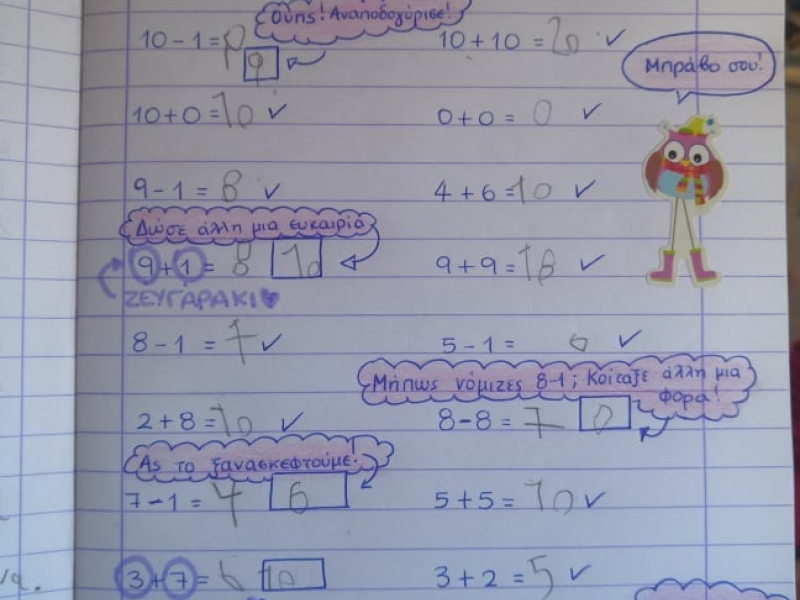 Ούπς! Αναποδογύρισε!
10-1= 9 10+10=20 ✓
9
Μπράβο σου!
10+0=10 ✓ 0+0= 0 ✓
9-1=8 ✓ 4+6=10 ✓
Δώσε άλλη μια ευκαιρία
9+1= 8 10 9+9=18 ✓
ΖΕΥΓΑΡΑΚΙ♥
8-1=7 ✓ 5-1= ✓
Μήπως νόμιζες 8-1; Κοίταξε άλλη μια
φορά!
2+8=10 ✓ 8-8=7 0
Ας το ξανασκεφτούμε!
7-1=4 6 5+5=10 ✓
3+7=6 10 3+2=5 ✓